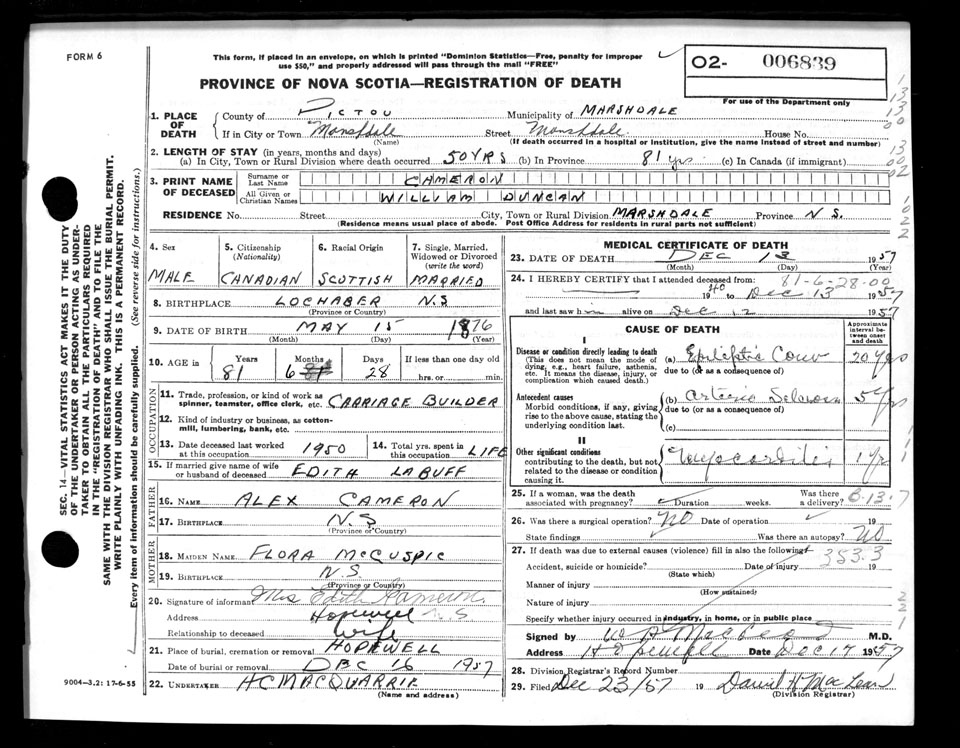 FORM 6
This form, if placed in an envelope, on which is printed "Dominion Statistics—Free, penalty for improper
use $50," and properly addressed will pass through the mail "FREE"
02- 006839
For use of the Department only
PROVINCE OF NOVA SCOTIA—REGISTRATION OF DEATH
SEC. 14—VITAL STATISTICS ACT MAKES IT THE DUTY
OF THE UNDERTAKER OR PERSON ACTING AS UNDER-
TAKER TO OBTAIN ALL THE PARTICULARS REQUIRED
IN THE "REGISTRATION OF DEATH" AND TO FILE THE
SAME WITH THE DIVISION REGISTRAR WHO SHALL ISSUE THE BURIAL PERMIT.
WRITE PLAINLY WITH UNFADING INK. THIS IS A PERMANENT RECORD.
Every item of information should be carefully supplied. (See reverse side for instructions.)
1. PLACE OF DEATH
County of PICTOU Municipality of MARSHDALE
If in City or Town Marshdale Street Marshdale House No.
(Name) (If death occurred in a hospital or institution, give the name instead of street and number)
2. LENGTH OF STAY (in years, months and days)
(a) In City, Town or Rural Division where death occurred 50 YRS (b) In Province 81 yrs (c) In Canada (if immigrant)
3. PRINT NAME OF DECEASED
Surname or Last Name CAMERON
All Given or Christian Names WILLIAM DUNCAN
RESIDENCE No. Street City, Town or Rural Division MARSHDALE Province N S.
(Residence means usual place of abode. Post Office Address for residents in rural parts not sufficient)
4. Sex 5. Citizenship (Nationality) 6. Racial Origin 7. Single, Married, Widowed or Divorced (write the word)
MALE CANADIAN SCOTTISH MARRIED
8. BIRTHPLACE LOCHABER N.S
(Province or Country)
9. DATE OF BIRTH MAY 15 1876
(Month) (Day) (Year)
10. AGE in Years Months Days If less than one day old
81 6 28 hrs. or min.
OCCUPATION
11. Trade, profession, or kind of work as
spinner, teamster, office clerk, etc. CARRIAGE BUILDER
12. Kind of industry or business, as cotton-
mill, lumbering, bank, etc.
13. Date deceased last worked at this occupation 1950 14. Total yrs. spent in this occupation LIFE
15. If married give name of wife
or husband of deceased EDITH LABUFF
FATHER
16. NAME ALEX CAMERON
17. BIRTHPLACE N.S
(Province or Country)
MOTHER
18. MAIDEN NAME FLORA McCUSPIC
19. BIRTHPLACE N.S.
(Province or Country)
20. Signature of informant Mrs Edith Cameron
Address Hopewell N.S
Relationship to deceased Wife
21. Place of burial, cremation or removal HOPEWELL
Date of burial or removal DEC 16 1957
22. UNDERTAKER HC MACQUARRIE
(Name and address)
9004-3.2: 17-6-55
MEDICAL CERTIFICATE OF DEATH
23. DATE OF DEATH DEC 13 1957
(Month) (Day) (Year)
81-6-28-00
24. I HEREBY CERTIFY that I attended deceased from:
1940 to Dec 13 1957
and last saw him alive on Dec 12 1957
CAUSE OF DEATH
Approximate interval between onset and death
I
Disease or condition directly leading to death
(This does not mean the mode of dying, e.g., heart failure, asthenia, etc. It means the disease, injury, or complication which caused death.)
(a) Epileptic Conv 20 yrs
due to (or as a consequence of)
Antecedent causes
Morbid conditions, if any, giving rise to the above cause, stating the underlying condition last.
(b) arterio Sclerosis 5 yrs
due to (or as a consequence of)
(c)
II
Other significant conditions
contributing to the death, but not related to the disease or condition causing it.
Myocarditis 1 yr
25. If a woman, was the death associated with pregnancy? Duration weeks. Was there a delivery?
26. Was there a surgical operation? NO Date of operation 19
State findings Was there an autopsy? NO
27. If death was due to external causes (violence) fill in also the following:
353.3
Accident, suicide or homicide? Date of injury 19
(State which)
Manner of injury
(How sustained)
Nature of injury
Specify whether injury occurred in industry, in home, or in public place
Signed by M.D.
Address Hopewell Date Dec 17 1957
28. Division Registrar's Record Number
29. Filed Dec 23/57 19 Daniel H MacLean
(Division Registrar)